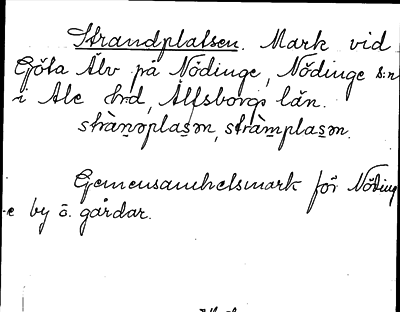 Strandplatsen. Mark vid
Göta Älv på Nödinge, Nödinge s:n
i Ale h:d, Älfsborgs län.
stràn̥əplasəm, stràmplasəm.
Gemensamhetsmark för Nöding
-e by o. gårdar.